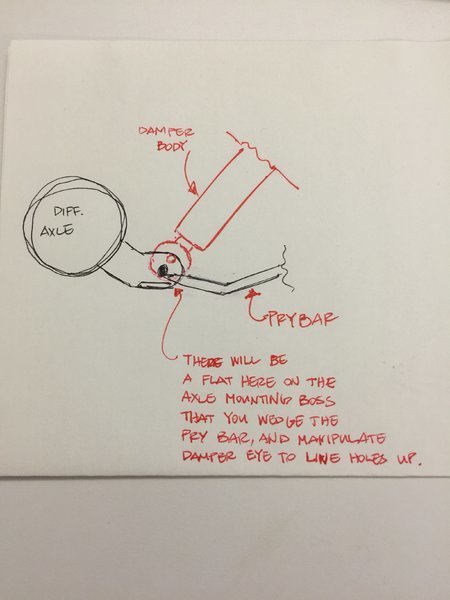 DAMPER
BODY
DIFF.
AXLE
PRYBAR
THERE WILL BE
A FLAT HERE ON THE
AXLE MOUNTING BOSS
THAT YOU WEDGE THE
PRY BAR, AND MANIPULATE
DAMPER EYE TO LINE HOLES UP.